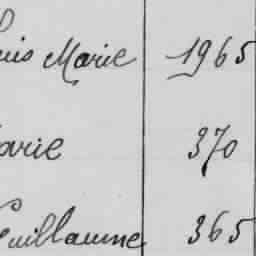 Louis Marie 1965
Marie 370
Guillaume 365